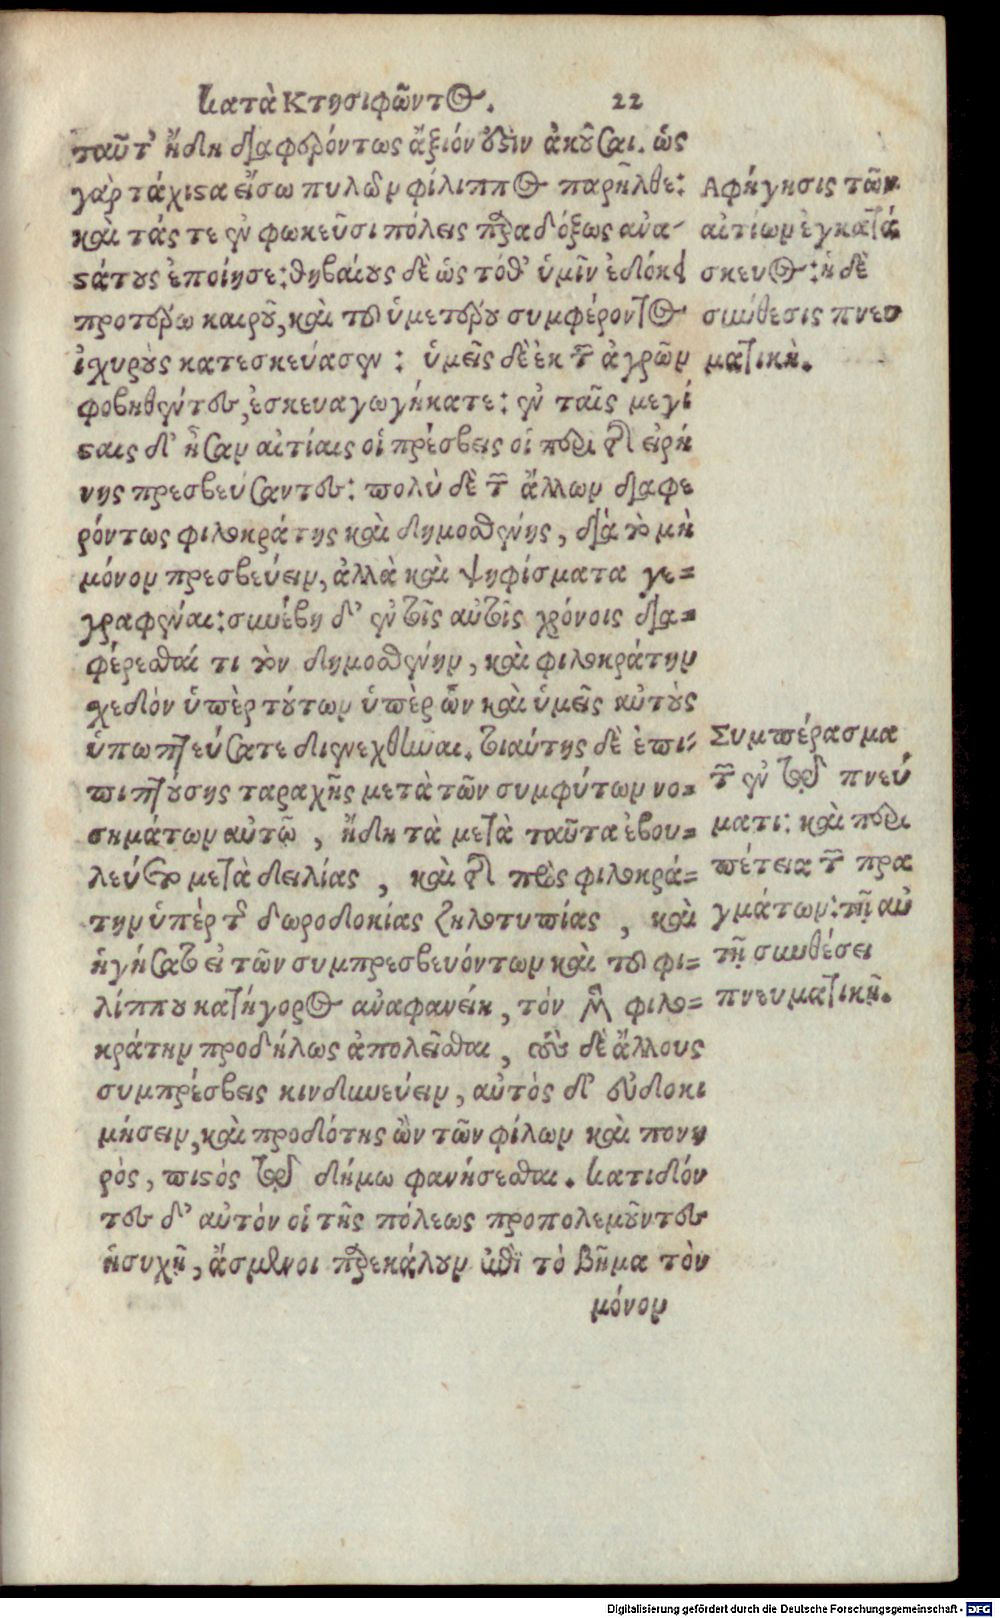 Κατὰ Κτησιφῶντος. 22
ταῦτ' ἤδη διαφερόντως ἄξιόν ἐστιν ἀκοῦσαι. ὡς
γὰρ τάχιστα εἴσω πυλῶν φίλιππος παρῆλθε:
καὶ τάς τε ἐν φωκεῦσι πόλεις παραδόξως ἀνα-
στάτους ἐποίησε: θηβαίους δὲ ὡς τόθ' ὑμῖν ἐδόκει
προτέρω καιροῦ, καὶ τοῦ ὑμετέρου συμφέροντος
ἰχυροὺς κατεσκεύασεν: ὑμεῖς δὲ ἐκ τῶν ἀγρῶν
φοβηθέντες, ἐσκευαγωγήκατε: ἐν ταῖς μεγί
σταις δ' ἦσαν αἰτίαις οἱ πρέσβεις οἱ περὶ τῆς εἰρή
νης πρεσβεύσαντες: πολὺ δὲ τῶν ἄλλων διαφε
ρόντως φιλοκράτης καὶ δημοσθένης, διὰ τὸ μὴ
μόνον πρεσβεύειν, ἀλλὰ καὶ ψηφίσματα γε-
γραφέναι: συνέβη δ' ἐν τοῖς αὐτοῖς χρόνοις δια-
φέρεσθαί τι τὸν δημοσθένην, καὶ φιλοκράτην
χεδὸν ὑπὲρ τούτων ὑπὲρ ὧν καὶ ὑμεῖς αὐτοὺς
ὑπωπτεύσατε διενεχθῆναι. τοιαύτης δὲ ἐπι-
πιπτούσης ταραχῆς μετὰ τῶν συμφύτων νο-
σημάτων αὐτῷ, ἤδη τὰ μετὰ ταῦτα ἐβου-
λεύετο μετὰ δειλίας, καὶ τῆς πρὸς φιλοκρά-
την ὑπὲρ τῆς δωροδοκίας ζηλοτυπίας, καὶ
ἡγήσατο εἰ τῶν συμπρεσβευόντων καὶ τοῦ φι-
λίππου κατήγορος ἀναφανείη, τὸν μὲν φιλο-
κράτην προδήλως ἀπολεῖσθαι, τοὺς δὲ ἄλλους
συμπρέσβεις κινδυνεύειν, αὐτὸς δ' εὐδοκι
μήσειν, καὶ προδότης ὢν τῶν φίλων καὶ πονη
ρὸς, πιστὸς τῷ δήμω φανήσεσθαι. κατιδόν
τες δ' αὐτὸν οἱ τῆς πόλεως προπολεμοῦντες
ἡσυχῇ, ἄσμενοι παρεκάλουν ἐπὶ τὸ βῆμα τὸν
μόνον
Αφήγησις τῶν
αἰτίων ἐγκατά
σκευος: ἡ δὲ
σύνθεσις πνευ
ματική.
Συμπέρασμα
τῶν ἐν τῷ πνεύ
ματι: καὶ περι
πέτεια τῶν πρα
γμάτων: τῇ αὐ
τῇ συνθέσει
πνευματικῇ.
Digitalisierung gefördert durch die Deutsche Forschungsgemeinschaft - DFG